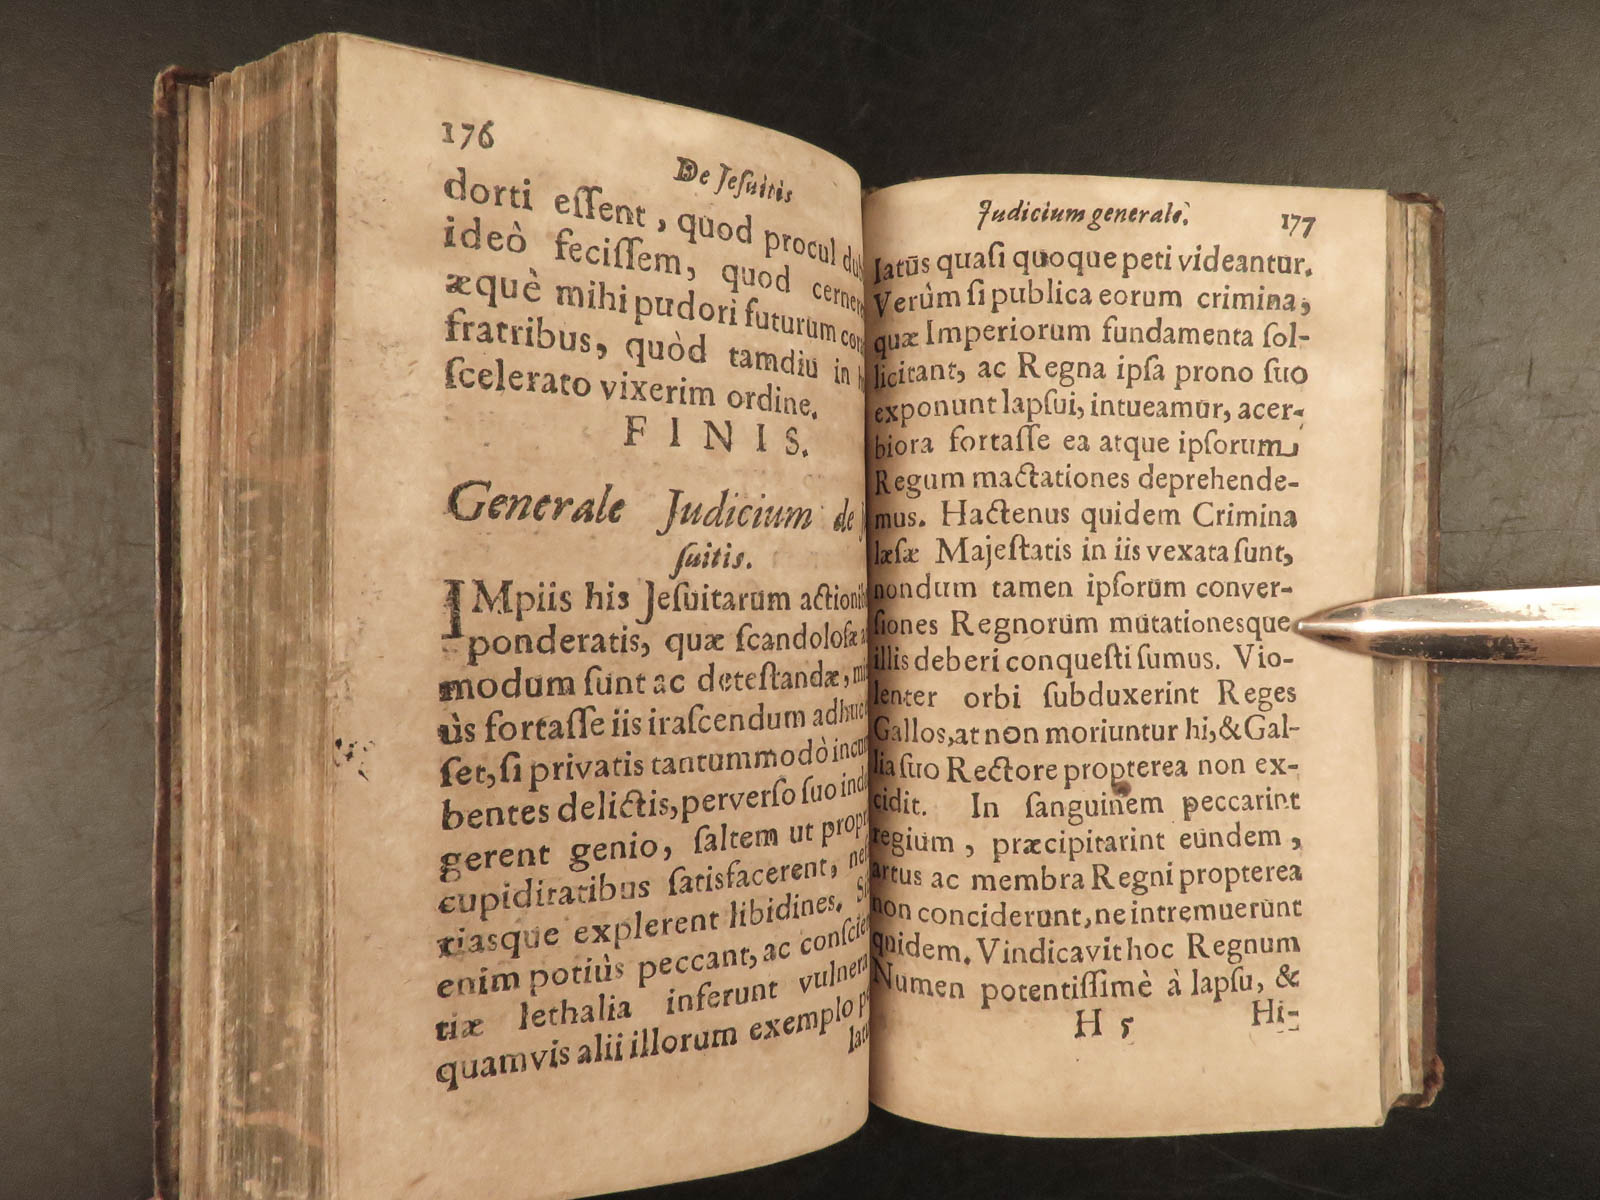 176
De Jesuitis
dorti eſſent, quod procul
ideò feciſſem, quod
æquè mihi pudori futurum
fratribus, quòd tamdiu in
ſcelerato vixerim ordine.
FINIS.
Generale Judicium de
ſuitis.
IMpiis his Jeſuitarum
ponderatis, quæ ſcandoloſæ
modum ſunt ac deteſtandæ,
ùs fortaſſe iis iraſcendum
ſet, ſi privatis tantummodò
bentes delictis, perverſo ſuo
gerent genio, ſaltem ut
cupiditatibus ſatisfacerent,
riasque explerent libidines.
enim potiùs peccant, ac
tiæ lethalia inferunt
quamvis alii illorum exemplo
Judicium generale.
177
latūs quaſi quoque peti videantur.
Verûm ſi publica eorum crimina,
quæ Imperiorum fundamenta ſol-
licitant, ac Regna ipſa prono ſuo
exponunt lapſui, intueamur, acer-
biora fortaſſe ea atque ipſorum
Regum mactationes deprehende-
mus. Hactenus quidem Crimina
læſæ Majeſtatis in iis vexata ſunt,
nondum tamen ipſorum conver-
ſiones Regnorum mutationesque
illis deberi conqueſti ſumus. Vio-
lenter orbi ſubduxerint Reges
Gallos, at non moriuntur hi, & Gal-
lia ſuo Rectore propterea non ex-
cidit. In ſanguinem peccarint
regium, præcipitarint eundem,
artus ac membra Regni propterea
non conciderunt, ne intremuerunt
quidem. Vindicavit hoc Regnum
Numen potentiſſimè à lapſu, &
H 5
Hi-